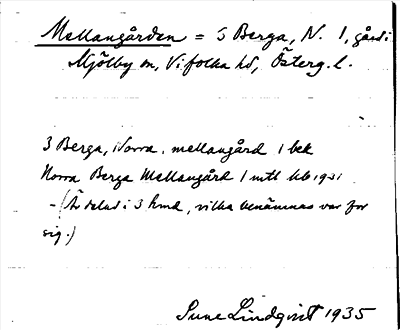 Mellangården = 3 Berga, N. 1, gård i
Mjölby sn, Vifolka hd, Österg. l.
3 Berga, Norra, mellangård 1 bek
Norra Berga Mellangård 1 mtl Jb 1931
- (Är delad i 3 hmd, vilka benämnas var för
sig.)
Sune Lindqvist 1935